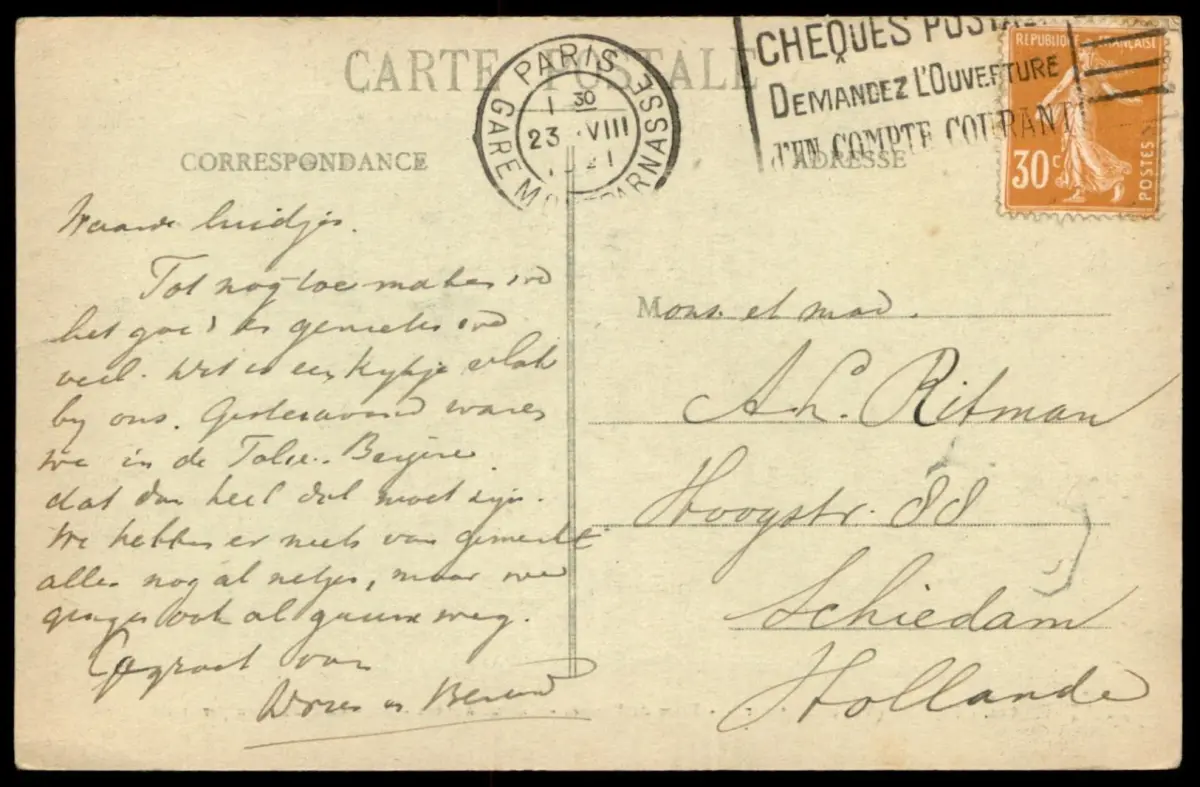 CARTE POSTALE
PARIS
GARE MONTPARNASSE
1 30
23 VIII
CHEQUES POSTA
DEMANDEZ L'OUVERTURE
COMPTE COURANT
REPUBLIQUE FRANÇAISE
30c
POSTES
CORRESPONDANCE
ADRESSE
Waarde luidjes.
Tot nog toe maken we
het goed en genieten we
veel. Dit is een kykje vlak
by ons. Gisteravond waren
we in de Folie-Bergère
dat dan heel dol moet zijn.
We hebben er niets van gemerkt
alles nog al netjes, maar we
gingen ook al gauw weg.
Gegroet van
Mons. et mad.
A. L. Ritman
Hoogstr. 88
Schiedam
Hollande